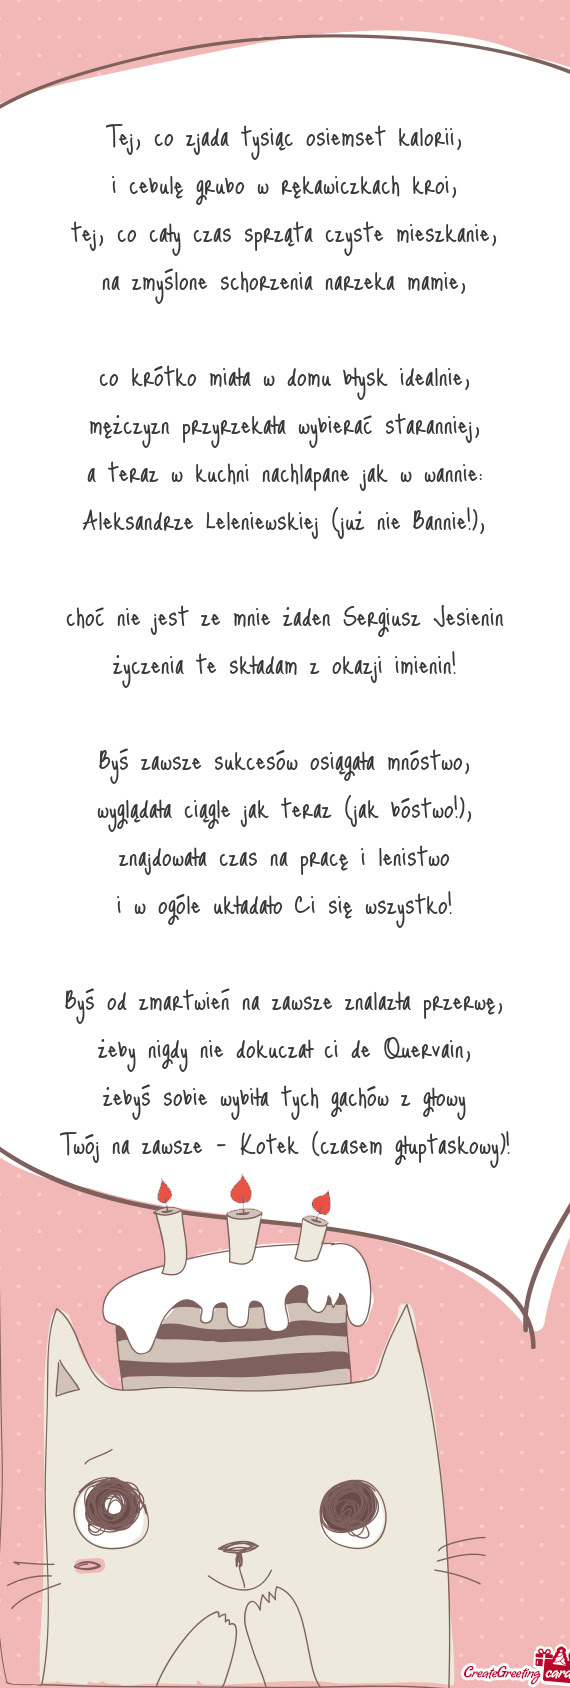 Tej, co zjada tysiąc osiemset kalorii,
i cebulę grubo w rękawiczkach kroi,
tej, co cały czas sprząta czyste mieszkanie,
na zmyślone schorzenia narzeka mamie,
co krótko miała w domu błysk idealnie,
mężczyzn przyrzekała wybierać staranniej,
a teraz w kuchni nachlapane jak w wannie:
Aleksandrze Leleniewskiej (już nie Bannie!),
choć nie jest ze mnie żaden Sergiusz Jesienin
życzenia te składam z okazji imienin!
Byś zawsze sukcesów osiągała mnóstwo,
wyglądała ciągle jak teraz (jak bóstwo!),
znajdowała czas na pracę i lenistwo
i w ogóle układało Ci się wszystko!
Byś od zmartwień na zawsze znalazła przerwę,
żeby nigdy nie dokuczał ci de Quervain,
żebyś sobie wybiła tych gachów z głowy
Twój na zawsze - Kotek (czasem głuptaskowy)!
CreateGreeting card